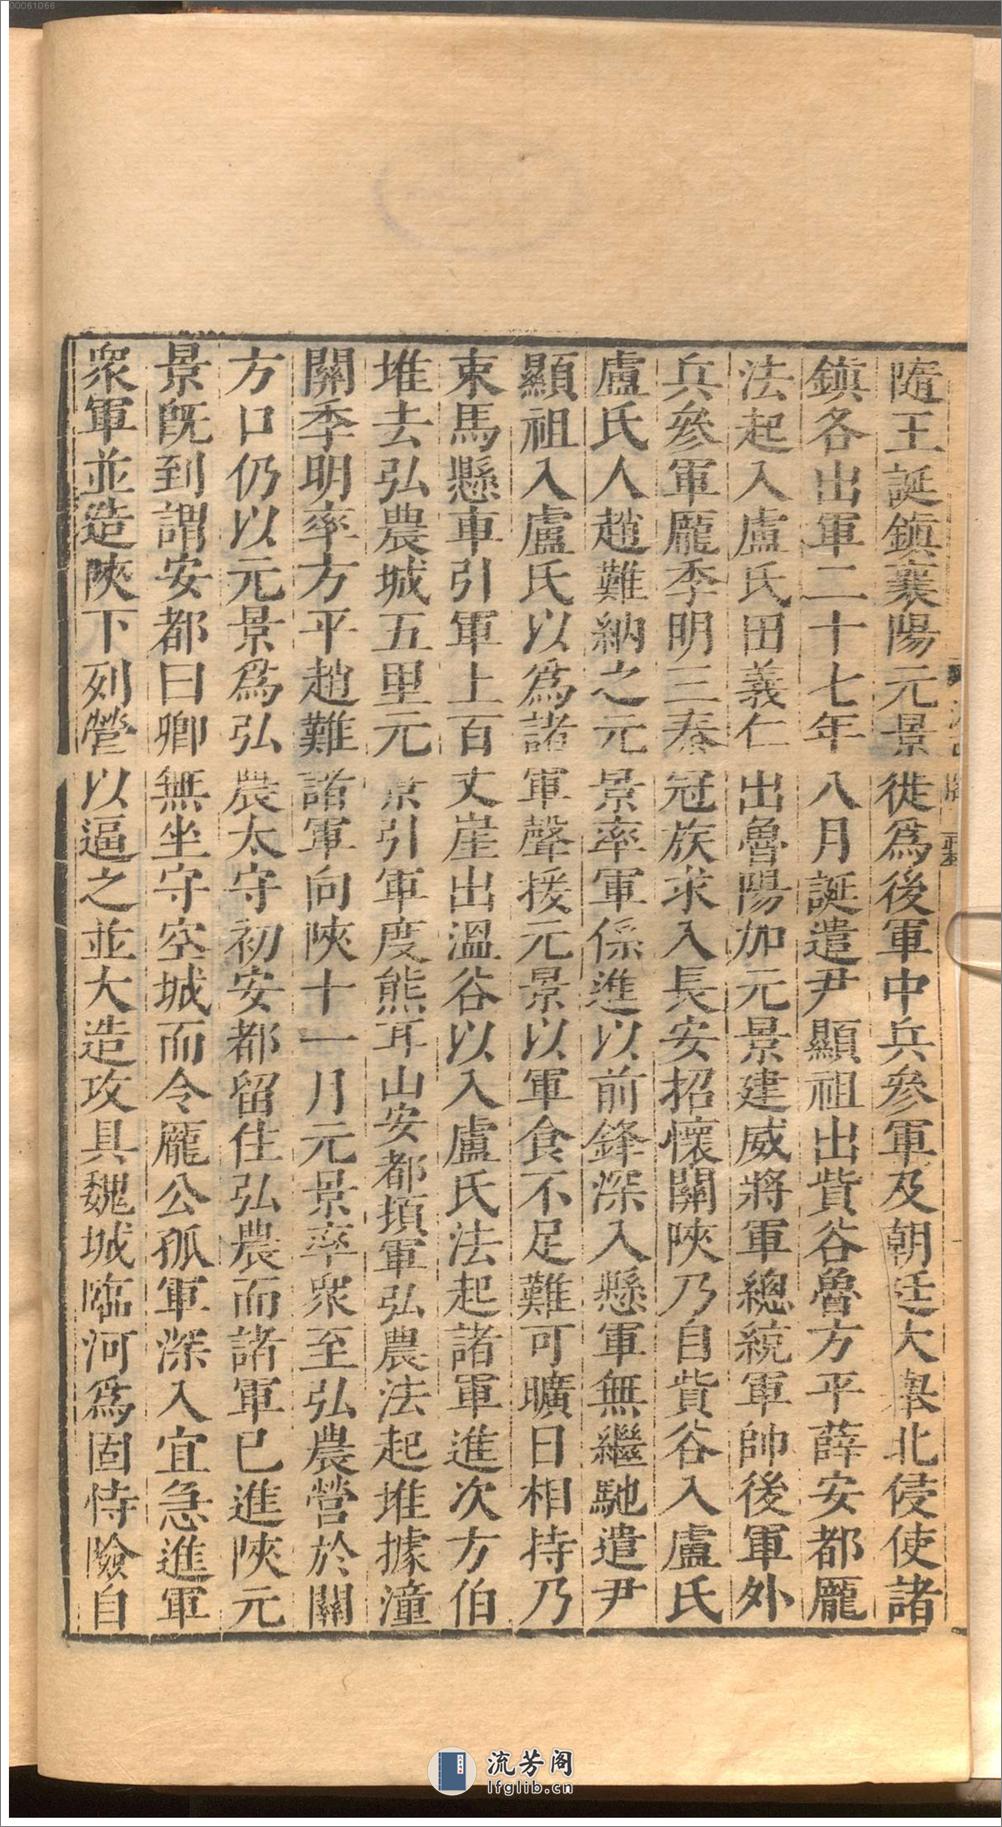 隋王誕鎮襄陽元景徙爲後軍中兵參軍及朝廷大舉北侵使諸
鎮各出軍二十七年八月誕遣尹顯祖出貲谷魯方平薛安都龐
法起入盧氏田義仁出魯陽加元景建威將軍總統軍帥後軍外
兵參軍龐季明三秦冠族求入長安招懷關陝乃自貲谷入盧氏
盧氏人趙難納之元景率軍係進以前鋒深入懸軍無繼馳遣尹
顯祖入盧氏以爲諸軍聲援元景以軍食不足難可曠日相持乃
束馬懸車引軍上百丈崖出溫谷以入盧氏法起諸軍進次方伯
堆去弘農城五里元景引軍度熊耳山安都頓軍弘農法起堆據潼
關季明率方平趙難諸軍向陝十一月元景率衆至弘農營於關
方口仍以元景爲弘農太守初安都留住弘農而諸軍已進陝元
景旣到謂安都曰卿無坐守空城而令龐公孤軍深入宜急進軍
衆軍並造陝下列營以逼之並大造攻具魏城臨河爲固恃險自
流芳阁
lfglib.cn
00061066